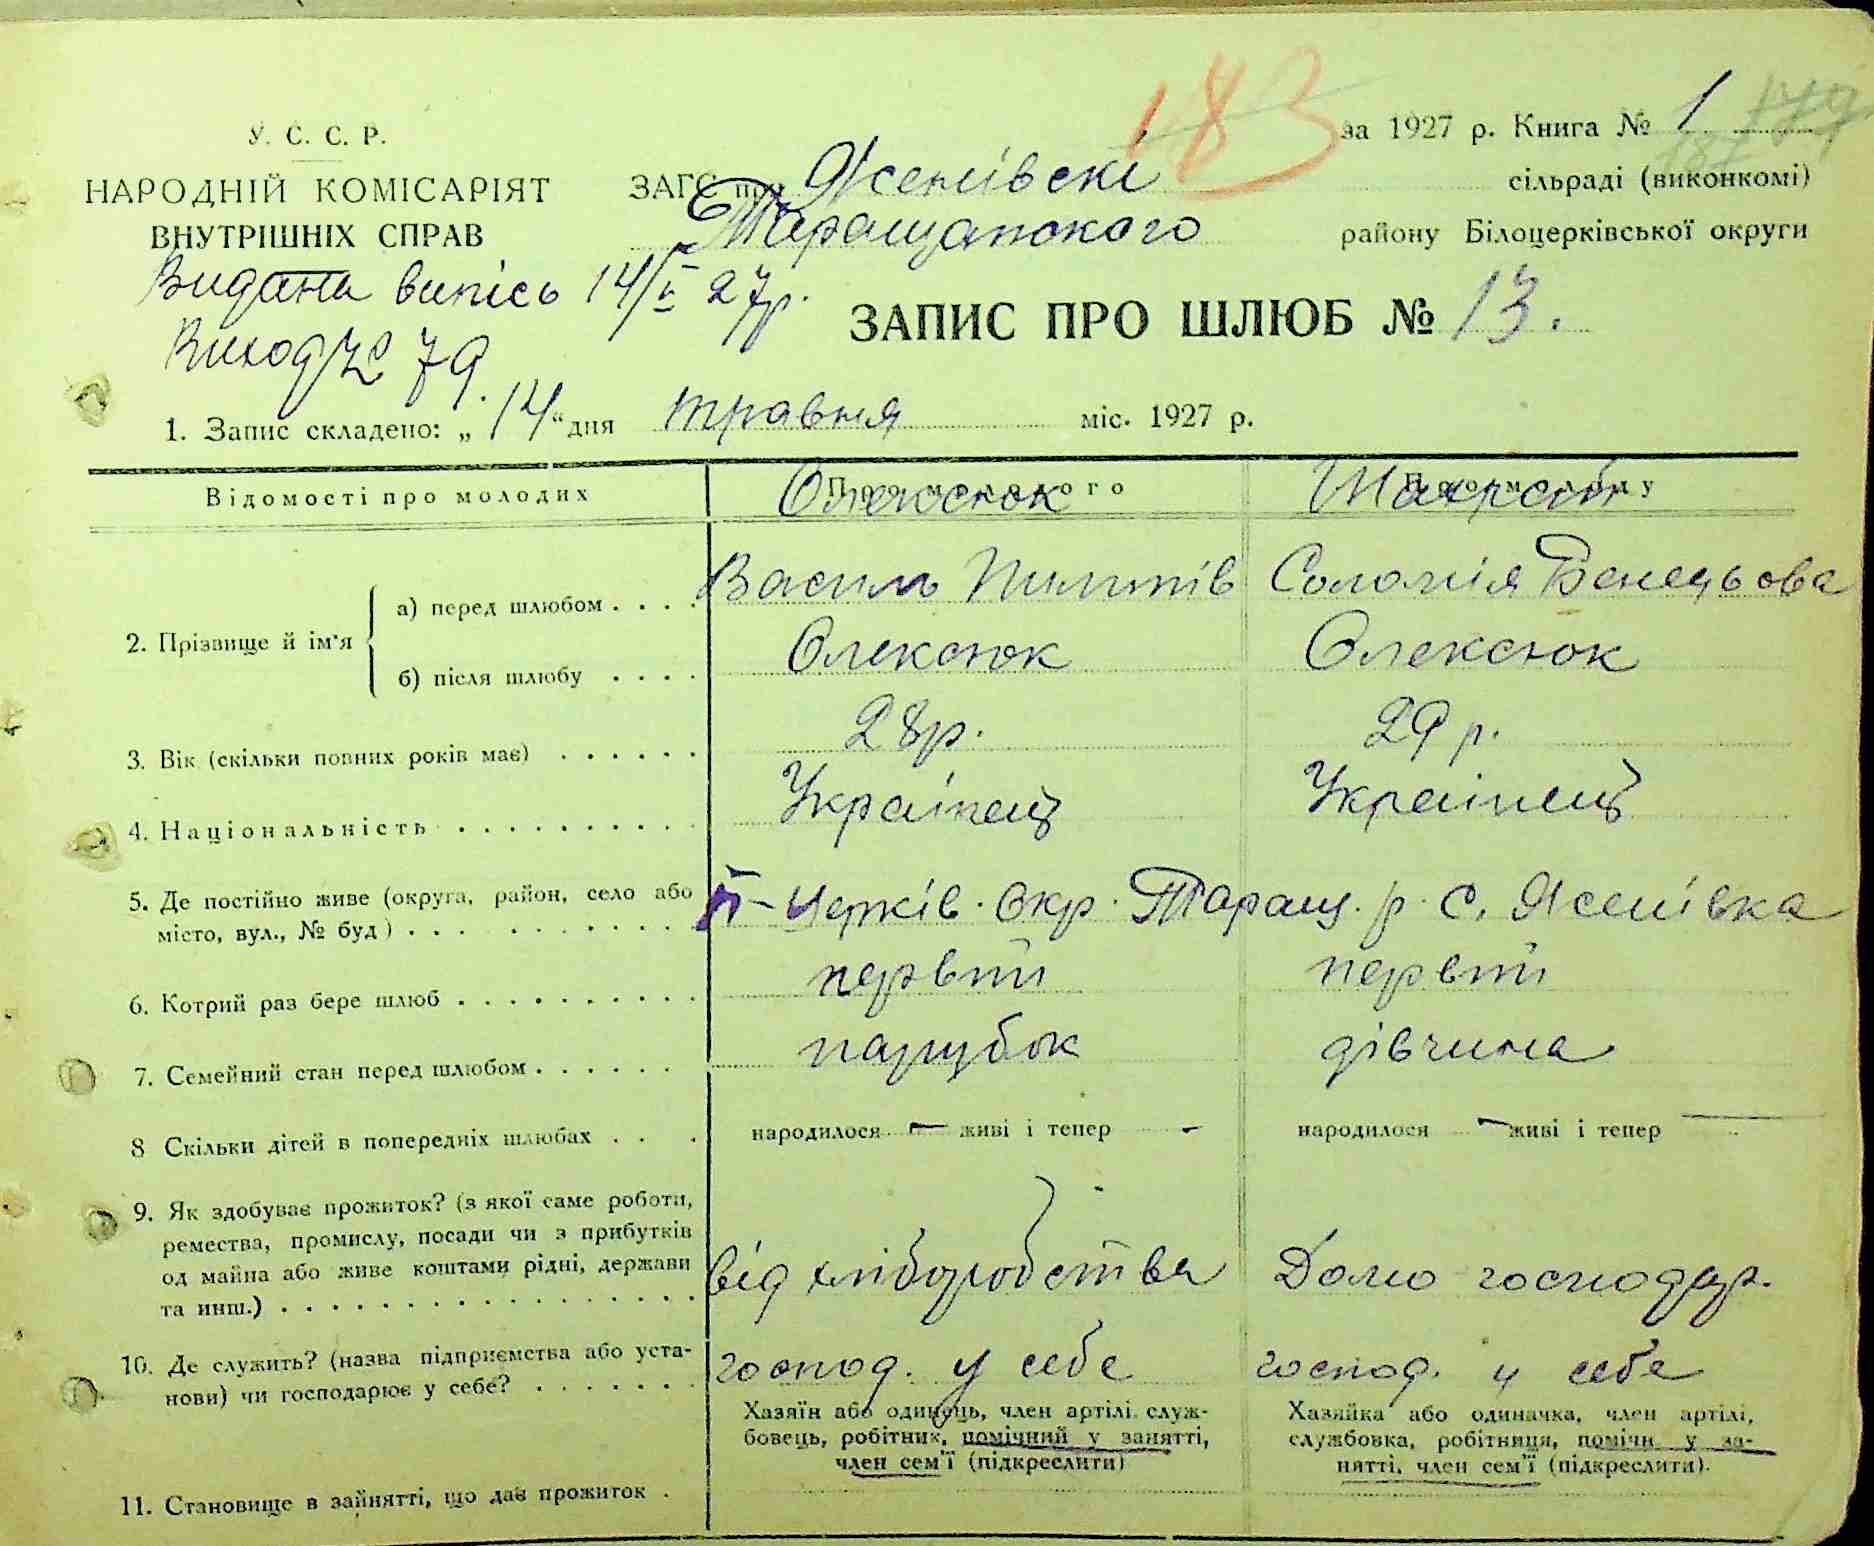 183
за 1927 р. Книга № 1 179
У. С. С. Р.
НАРОДНІЙ КОМІСАРІЯТ
ВНУТРІШНІХ СПРАВ
ЗАГС при Ясенівські сільраді (виконкомі)
Таращанського району Білоцерківської округи
Видана випісь 14/V 27р.
Виход № 79.
ЗАПИС ПРО ШЛЮБ № 13.
1. Запис складено: „14“ дня травня міс. 1927 р.
Відомості про молодих Про молодого Про молоду
Олексюк
2. Прізвище й ім'я
а) перед шлюбом . . . . Василь Пилипів Соломія
б) після шлюбу . . . . Олексюк Олексюк
3. Вік (скільки повних років має) . . . . . . 28р. 29 р.
4. Національність . . . . . . . . . . Українец Українец
5. Де постійно живе (округа, район, село або
місто, вул., № буд) . . . . . . . . . . Церків. Окр. Таращ. р. С. Ясенівка
6. Котрий раз бере шлюб . . . . . . . . . . первий первий
7. Семейний стан перед шлюбом . . . . . . парубок дівчина
8 Скільки дітей в попередніх шлюбах . . . народилося — живі і тепер - народилося - живі і тепер —
9. Як здобуває прожиток? (з якої саме роботи,
ремества, промислу, посади чи з прибутків
од майна або живе коштами рідні, держави
та инш.) . . . . . . . . . . . . . . . . . від хліборобства Домо господар.
10. Де служить? (назва підприємства або уста-
нови) чи господарює у себе? . . . . . . . господ. у себе господ. у себе
Хазяїн або одинець, член артілі, служ-
бовець, робітник, помічний у занятті,
член сем'ї (підкреслити)
Хазяйка або одиначка, член артілі,
службовка, робітниця, помічн у за-
нятті, член сем'ї (підкреслити).
11. Становище в зайнятті, що дає прожиток .